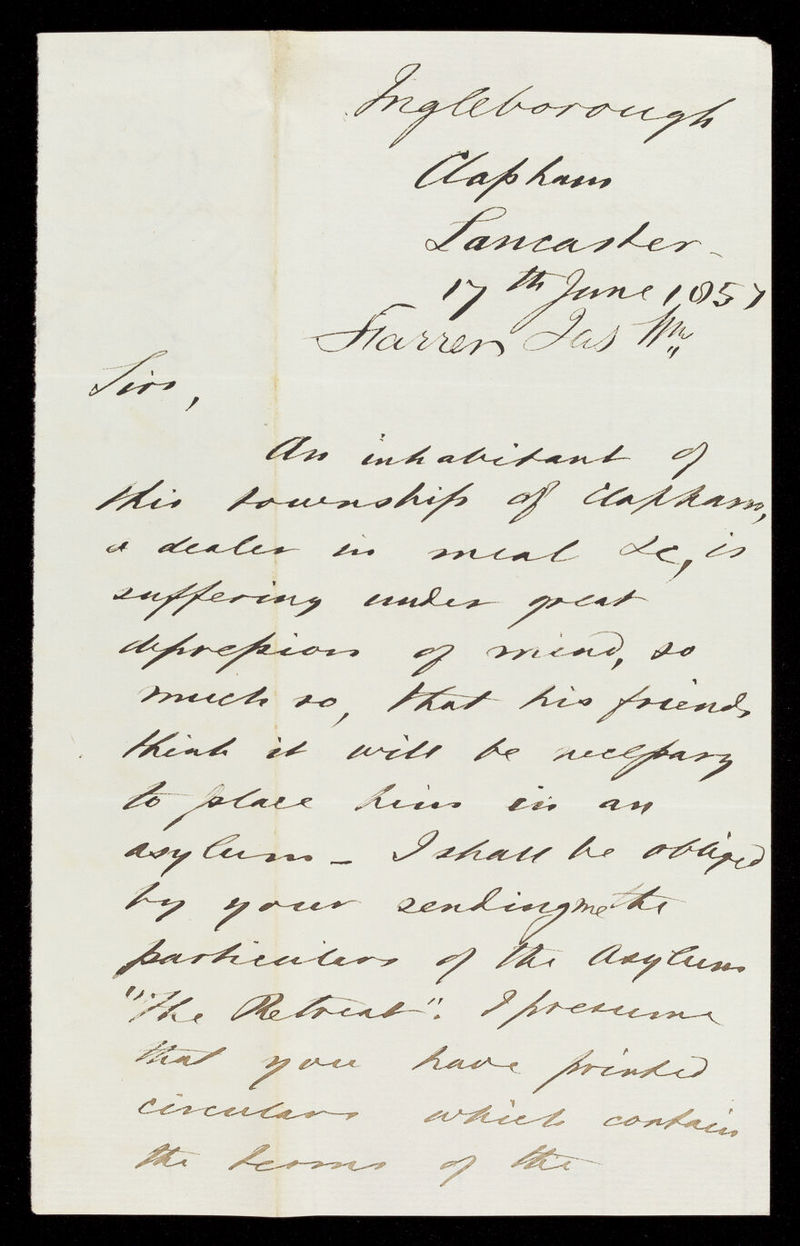 Ingleborough
Clapham
Lancaster
17th June 1857
Jas Wm
Sir,
An inhabitant of
this township of Clapham,
a dealer in meal &c, is
suffering under great
depression of mind, so
much so, that his friends
think it will be necessary
to place him in an
asylum - I shall be obliged
by your sending me the
particulars of the Asylum
"The Retreat". I presume
that you have printed
circulars which contain
the terms of the